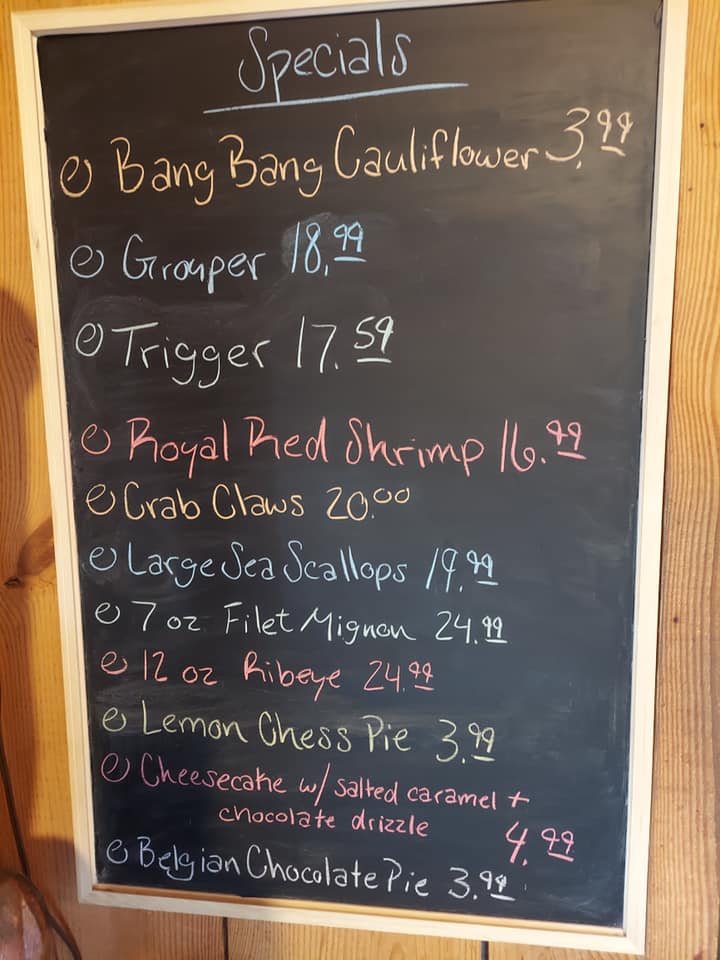 Specials
Bang Bang Cauliflower 3.99
Grouper 18.99
Trigger 17.59
Royal Red Shrimp 16.99
Crab Claws 20.00
Large Sea Scallops 19.99
7 oz Filet Mignon 24.99
12 oz Ribeye 24.99
Lemon Chess Pie 3.99
Cheesecake w/ salted caramel +
chocolate drizzle 4.99
Belgian Chocolate Pie 3.99